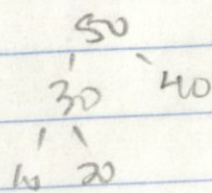 50
30 40
10 20